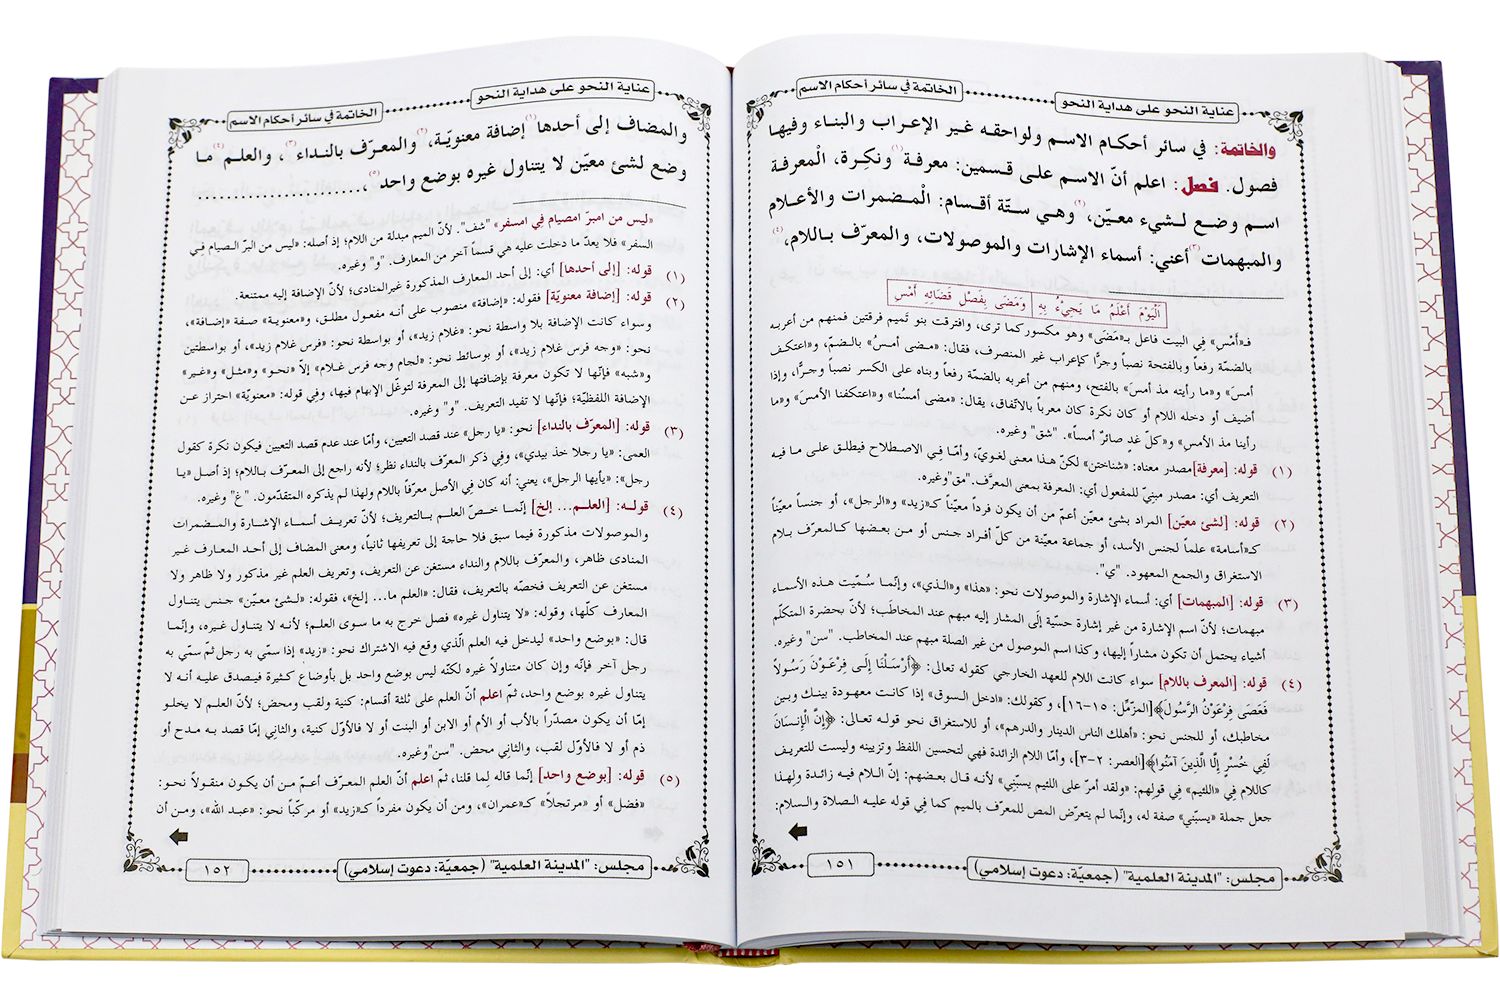 عناية النحو على هداية النحو
الخاتمة في سائر أحكام الاسم
والخاتمة: في سائر أحكام الاسم ولواحقه غير الإعراب والبناء وفيها
فصول. فصل: اعلم أنّ الاسم على قسمين: معرفة(١) ونكرة، الْمعرفة
اسم وضع لشيء معيّن،(٢) وهي ستّة أقسام: الْمضمرات والأعلام
والمبهمات(٣) أعني: أسماء الإشارات والموصولات، والمعرّف باللام،(٤)
اَلْيَوْمَ أَعْلَمُ مَا يَجِيْءُ بِهِ وَمَضَى بِفَصْلِ قَضَائِهِ أَمْسِ
فـ«أمْسِ» فِي البيت فاعل بـ«مَضَى» وهو مكسور كما ترى، وافترقت بنو تَميم فرقتين فمنهم من أعربه
بالضمّة رفعاً وبالفتحة نصباً وجرًّا كإعراب غير المنصرف، فقال: «مضى أمسُ» بالضمّ، و«اعتكف
أمسَ» و«ما رأيته مذ أمسَ» بالفتح، ومنهم من أعربه بالضمّة رفعاً وبناه على الكسر نصباً وجرًّا، وإذا
أضيف أو دخله اللام أو كان نكرة كان معرباً بالاتّفاق، يقال: «مضى أمسُنا» و«اعتكفنا الأمسَ» و«ما
رأينا مذ الأمسِ» و«كلّ غدٍ صائرٌ أمساً». "شق" وغيره.
(١) قوله: [معرفة] مصدر معناه: «شناختن» لكنّ هذا معنى لغويّ، وأمّا فِي الاصطلاح فيطلق على ما فيه
التعريف أي: مصدر مبنِيّ للمفعول أي: المعرفة بمعنى المعرَّف. "مق" وغيره.
(٢) قوله: [لشئ معيّن] المراد بشئ معيّن أعمّ من أن يكون فرداً معيّناً كـ«زيد» و«الرجل»، أو جنساً معيّناً
كـ«أسامة» علماً لجنس الأسد، أو جماعة معيّنة من كلّ أفراد جنس أو من بعضها كـالمعرّف بـلام
الاستغراق والجمع المعهود. "ي".
(٣) قوله: [المبهمات] أي: أسماء الإشارة والموصولات نحو: «هذا» و«الـذي»، وإنّمـا سُـمّيت هـذه الأسماء
مبهمات؛ لأنّ اسم الإشارة من غير إشارة حسّيّة إلَى المشار إليه مبهم عند المخاطَب؛ لأنّ بحضرة المتكلّم
أشياء يحتمل أن تكون مشاراً إليها، وكذا اسم الموصول من غير الصلة مبهم عند المخاطب. "سن" وغيره.
(٤) قوله: [المعرف باللام] سواء كانت اللام للعهد الخارجي كقوله تعالى: ﴿أَرْسَلْنَا إِلَى فِرْعَوْنَ رَسُولاً
فَعَصَى فِرْعَوْنُ الرَّسُولَ﴾[المزّمّل: ١٥-١٦]، وكقولك: «ادخل السوق» إذا كانت معهودة بينك وبين
مخاطبك، أو للجنس نحو: «أهلك الناس الدينار والدرهم»، أو للاستغراق نحو قوله تعالى: ﴿إِنَّ الْإِنسَانَ
لَفِي خُسْرٍ إِلَّا الَّذِينَ آمَنُوا﴾[العصر: ٢-٣]، وأمّا اللام الزائدة فهي لتحسين اللفظ وتزيينه وليست للتعريف
كاللام فِي «اللئيم» فِي قولهم: «ولقد أمرّ على اللئيم يسبّنِي» لأنه قال بعضهم: إنّ اللام فيه زائدة ولِهذا
جعل جملة «يسبّني» صفة له، وإنّما لم يتعرّض المص للمعرّف بالميم كما في قوله عليـه الـصلاة والـسلام:
مجلس: "المدينة العلمية" (جمعيّة: دعوت إسلامي)
١٥١
عناية النحو على هداية النحو
الخاتمة في سائر أحكام الاسم
والمضاف إلى أحدها(١) إضافة معنويّة،(٢) والمعرّف بالنداء(٣)، والعلم(٤) ما
وضع لشئ معيّن لا يتناول غيره بوضع واحد(٥)،....................
«ليس من امبرّ امصيام فِي امسفر» "شف". لأنّ الميم مبدلة من اللام؛ إذ أصله: «ليس من البرّ الـصيام فِي
السفر» فلا يعدّ ما دخلت عليه هي قسماً آخر من المعارف. "و" وغيره.
(١) قوله: [إلى أحدها] أي: إلى أحد المعارف المذكورة غيرالمنادى؛ لأنّ الإضافة إليه ممتنعة.
(٢) قوله: [إضافة معنويّة] فقوله: «إضافة» منصوب على أنه مفعول مطلق، و«معنويـة» صفة «إضافة»،
وسواء كانت الإضافة بلا واسطة نحو: «غلام زيد»، أو بواسطة نحو: «فرس غلام زيد»، أو بواسطتين
نحو: «وجه فرس غلام زيد»، أو بوسائط نحو: «لجام وجه فرس غلام» إلاّ «نحـو» و«مثـل» و«غير»
و«شبه» فإنّها لا تكون معرفة بإضافتها إلى المعرفة لتوغّل الإبهام فيها، وفِي قوله: «معنويّة» احتراز عـن
الإضافة اللفظيّة؛ فإنّها لا تفيد التعريف. "و" وغيره.
(٣) قوله: [المعرّف بالنداء] نحو: «يا رجل» عند قصد التعيين، وأمّا عند عدم قصد التعيين فيكون نكرة كقول
العمى: «يا رجلا خذ بيدي»، وفِي ذكر المعرّف بالنداء نظر؛ لأنه راجع إلى المعرّف بـاللام؛ إذ أصل «يـا
رجل»: «يأيها الرجل»، يعني: أنه كان فِي الأصل معرّفاً باللام ولهذا لم يذكره المتقدّمون. "غ" وغيره.
(٤) قولـه: [العلـم... إلخ] إنّمـا خـصّ العلـم بـالتعريف؛ لأنّ تعريـف أسمـاء الإشـارة والـمضمرات
والموصولات مذكورة فيما سبق فلا حاجة إلى تعريفها ثانياً، ومعنى المضاف إلى أحـد المعـارف غـير
المنادى ظاهر، والمعرّف باللام والنداء مستغن عن التعريف، وتعريف العلم غير مذكور ولا ظاهر ولا
مستغن عن التعريف فخصّه بالتعريف، فقال: «العلم ما... إلخ»، فقوله: «لـشئ معيّـن» جنس يتناول
المعارف كلّها، وقوله: «لا يتناول غيره» فصل خرج به ما سوى العلم؛ لأنه لا يتناول غـيره، وإنّمـا
قال: «بوضع واحد» ليدخل فيه العلم الّذي وقع فيه الاشتراك نحو: «زيد» إذا سمّي به رجل ثمّ سمّي به
رجل آخر فإنّه وإن كان متناولاً غيره لكنّه ليس بوضع واحد بل بأوضاع كثيرة فيـصدق عليـه أنـه لا
يتناول غيره بوضع واحد، ثمّ اعلم أنّ العلم على ثلثة أقسام: كنية ولقب ومحض؛ لأنّ العلـم لا يخلـو
إمّا أن يكون مصدّراً بالأب أو الأم أو الابن أو البنت أو لا فالأوّل كنية، والثانِي إمّا قصد بـه مـدح أو
ذم أو لا فالأوّل لقب، والثانِي محض. "سن" وغيره.
(٥) قوله: [بوضع واحد] إنّما قاله لِما قلنا، ثمّ اعلم أنّ العلم المعرّف أعمّ مـن أن يكون منقـولاً نحـو:
«فضل» أو «مرتجلاً» كـ«عمران»، ومن أن يكون مفرداً كـ«زيد» أو مركّبـاً نحو: «عبـد الله»، ومـن أن
مجلس: "المدينة العلمية" (جمعيّة: دعوت إسلامي)
١٥٢